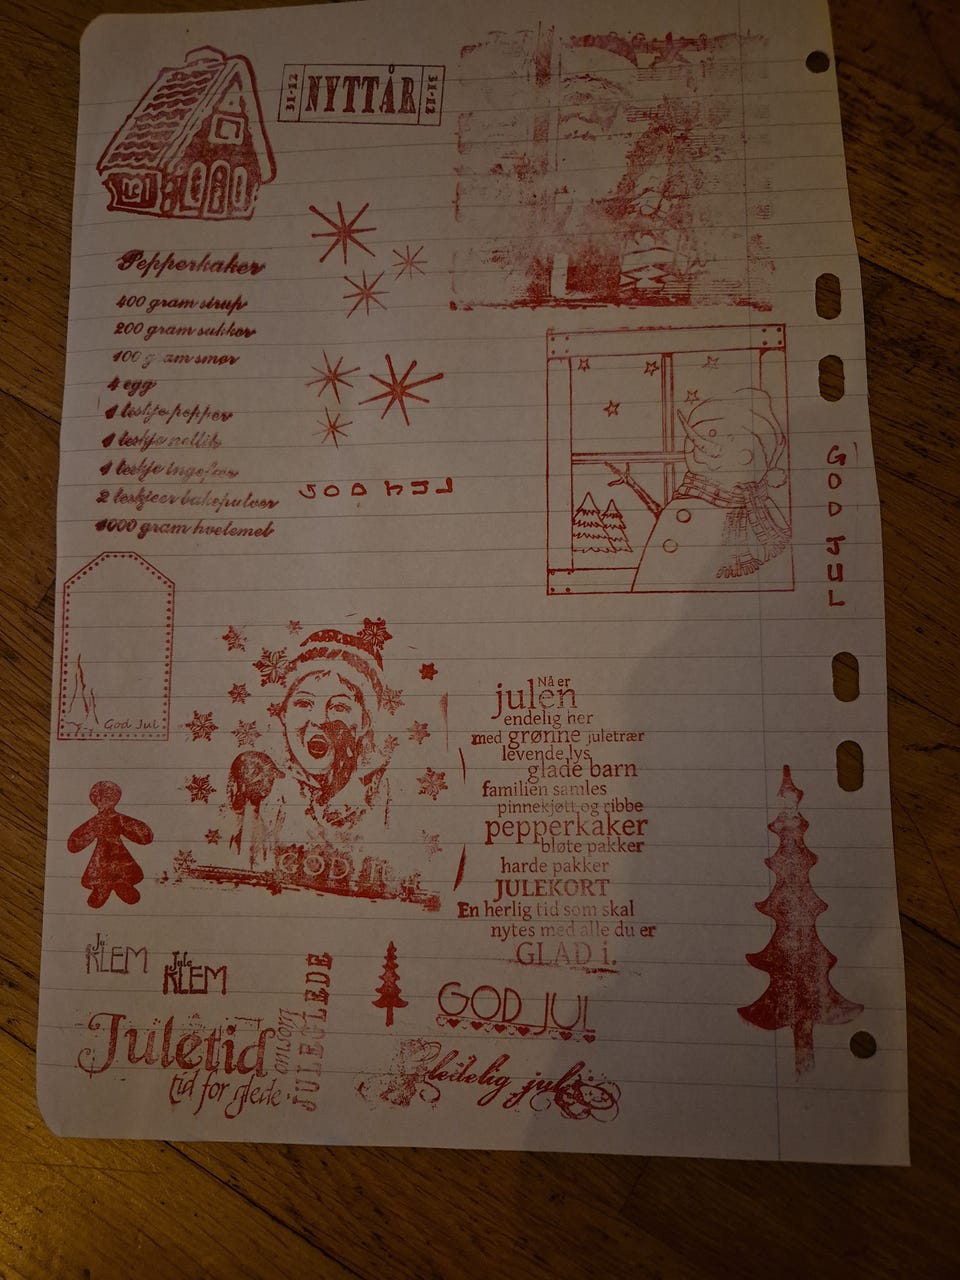 31-12
NYTTÅR
31-12
Pepperkaker
400 gram sirup
200 gram sukker
100 gram smør
4 egg
1 teskje pepper
1 teskje nellik
1 teskje ingefær
2 teskjeer bakepulver
1000 gram hvetemel
GOD JUL
GOD JUL
God Jul
GOD JUL
Nå er
julen
endelig her
med grønne juletrær
levende lys
glade barn
familien samles
pinnekjøtt og ribbe
pepperkaker
bløte pakker
harde pakker
JULEKORT
En herlig tid som skal
nytes med alle du er
GLAD i.
KLEM
Jule
KLEM
Juletid
tid for glede
omsorg
JULEGLEDE
GOD JUL
Gledelig jul